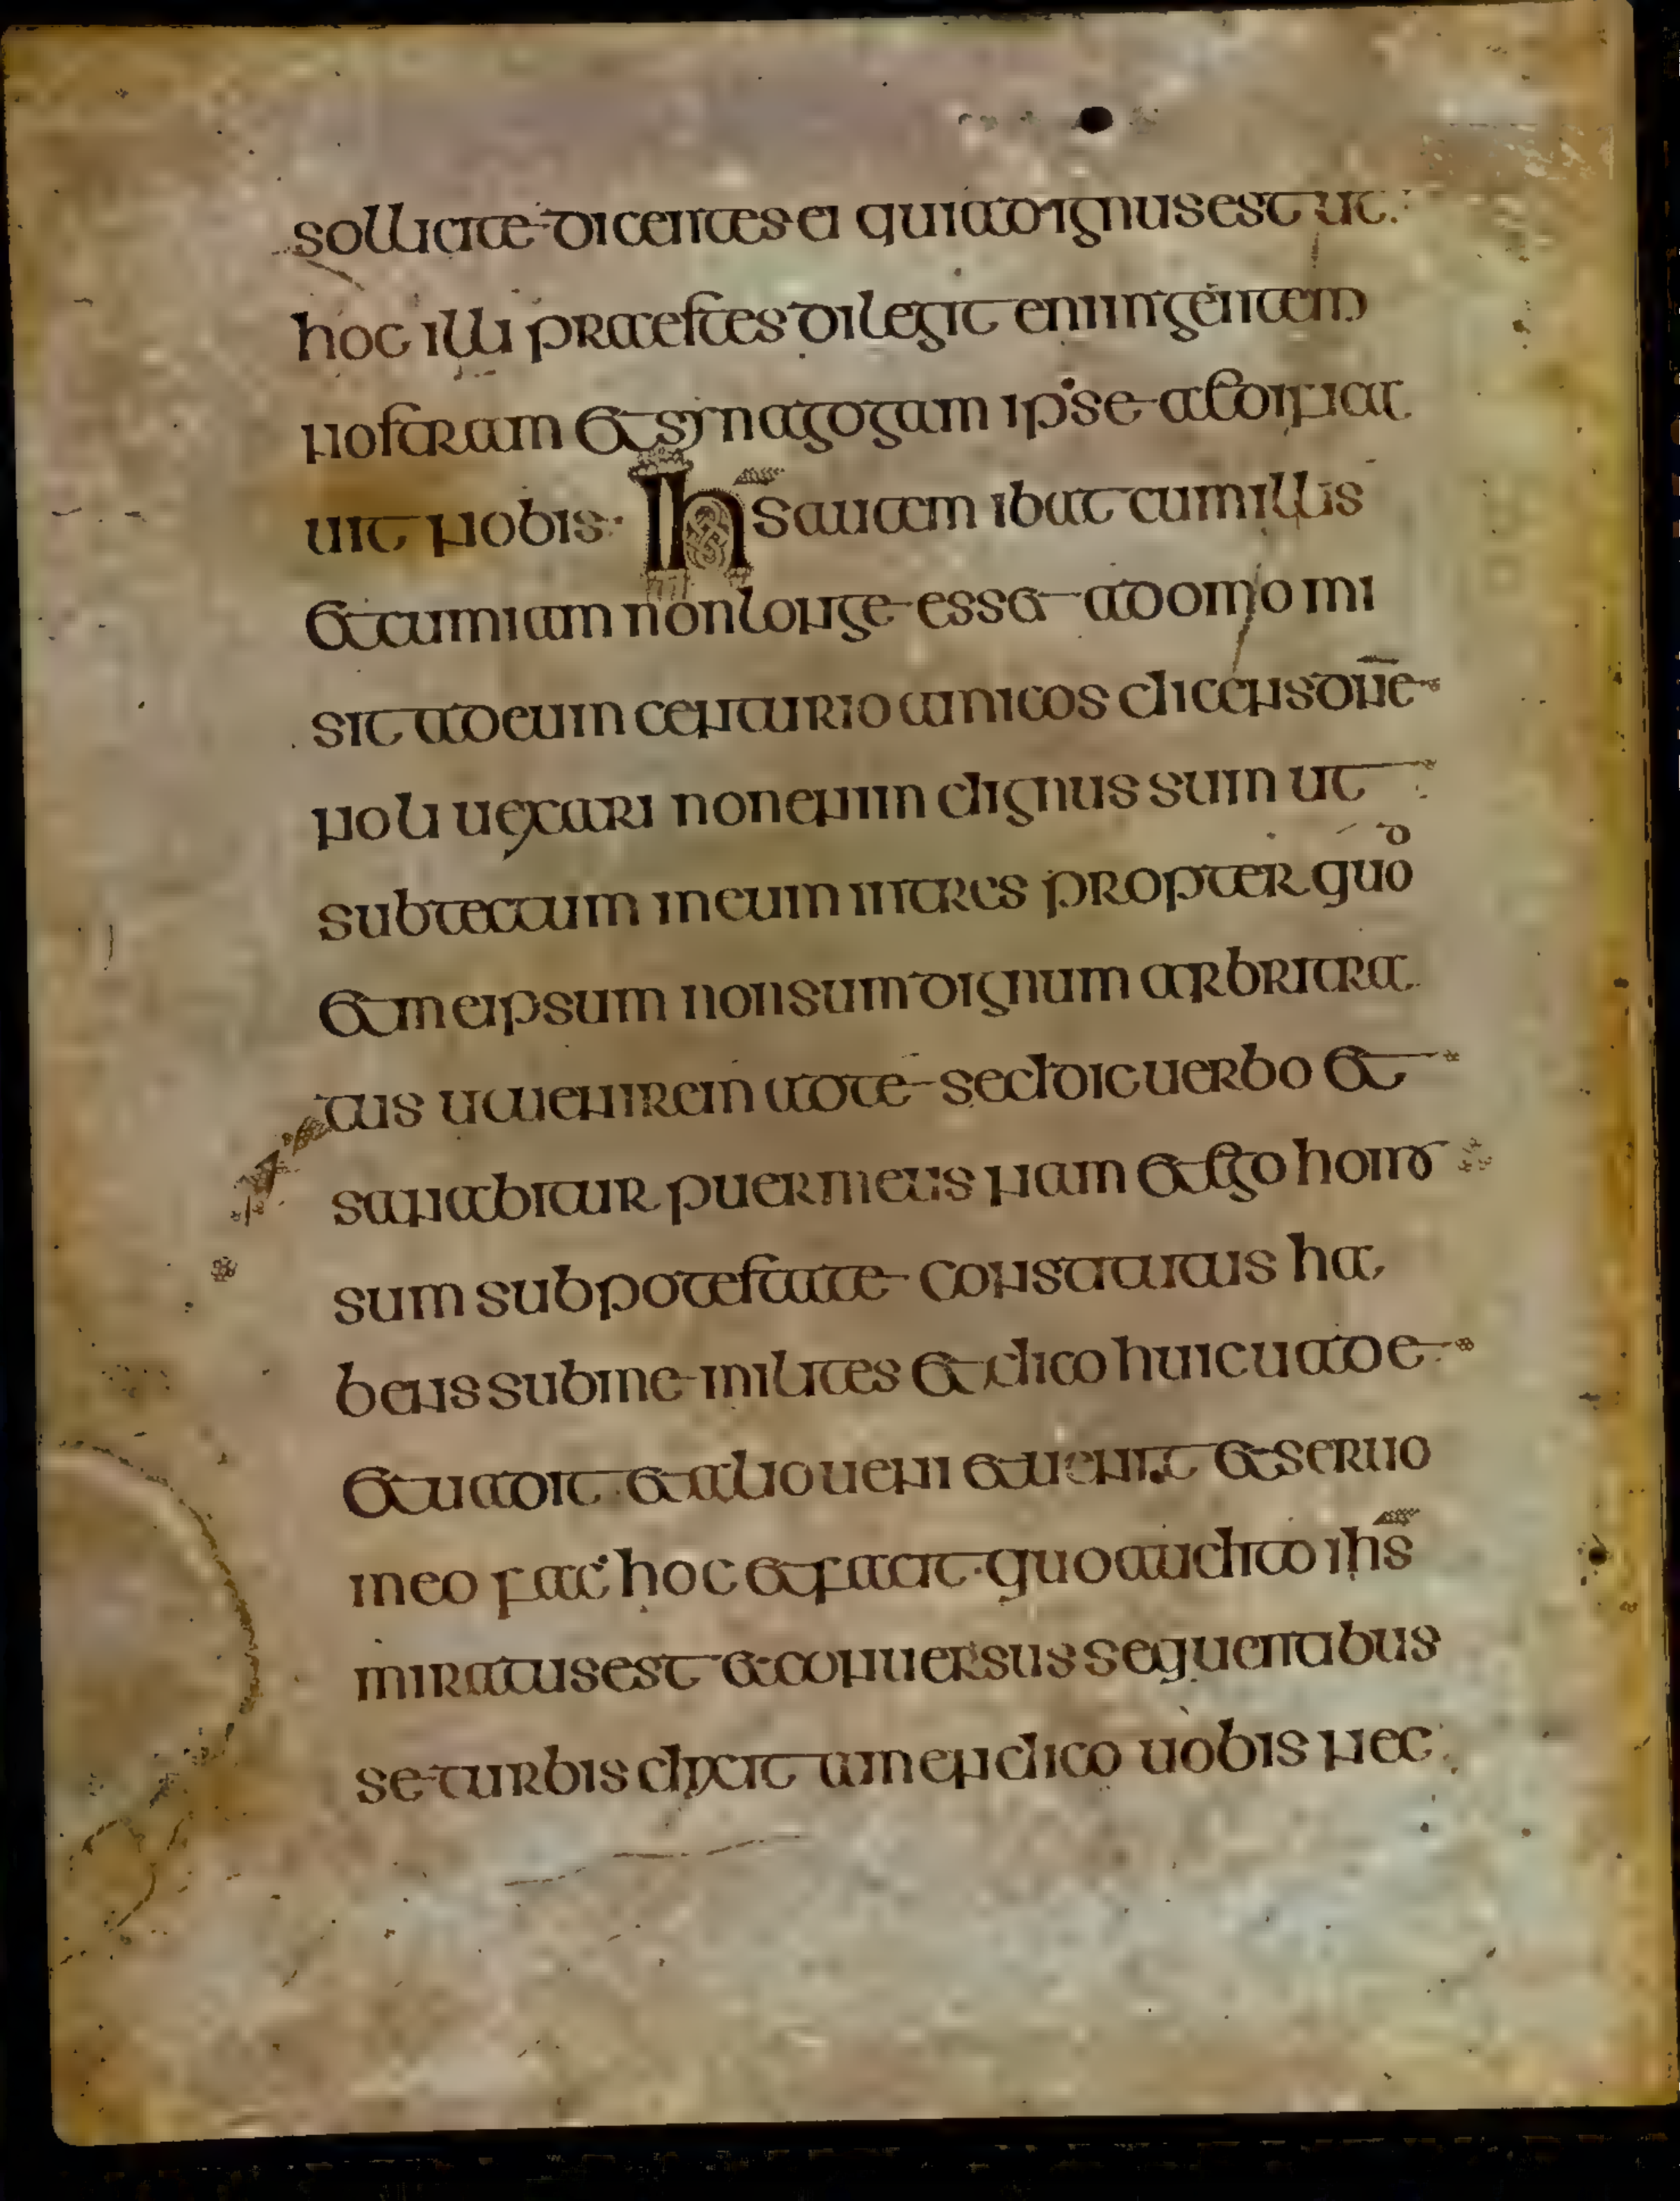 sollicite dicentes ei quia dignus est ut
hoc illi praestes dilegit enim gentem
nostram et synagogam ipse aedificat
uit nobis · Ihs̄ autem ibat cum illis
et cum iam non longe esset a domo mi
sit ad eum centurio amicos dicens dn̄e
noli uexari non enim dignus sum ut
sub tectum meum intres propter quod
et me ipsum non sum dignum arbritra
tus ut uenirem ad te sed dic uerbo et
sanabitur puer meus nam et ego homo
sum sub potestate constitutus ha
bens sub me milites et dico huic uade
et uadit et alio ueni et uenit et seruo
meo fac hoc et facit · quo audito ihs̄
miratus est et conuersus sequentibus
se turbis dixit amen dico uobis nec